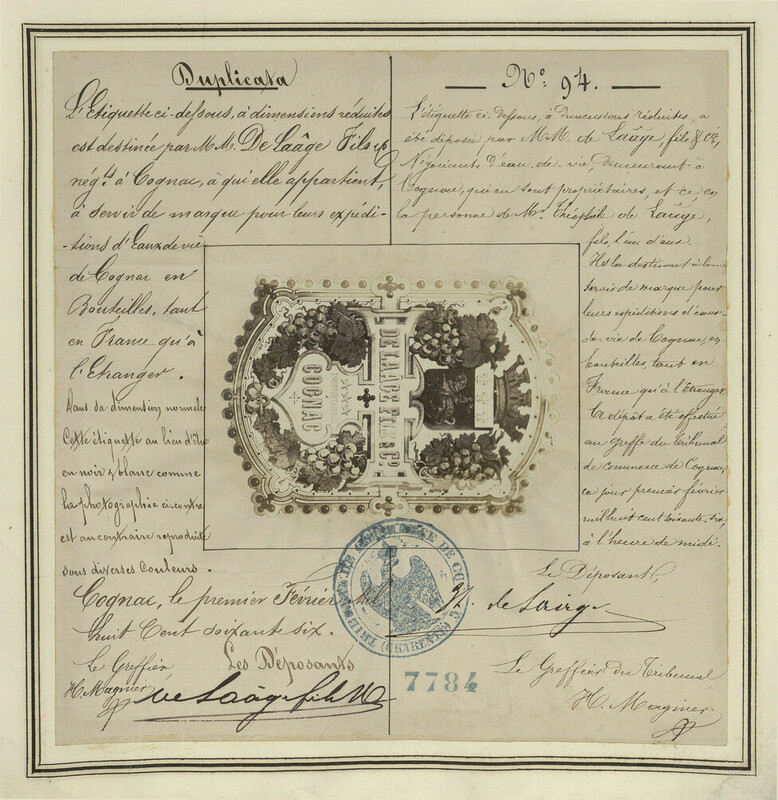 Duplicata
L'Etiquette ci-dessous, à dimensions réduites
est destinée par M.M. De Laâge Fils &
nég.ts à Cognac, à qui elle appartient,
à servir de marque pour leurs expédi-
-tions d'Eaux de vie
de Cognac en
Bouteilles, tant
en France qu'à
l'Etranger.
Dans sa dimension normale
Cette étiquette au lieu d'être
en noir & blanc comme
la photographie ci-contre
est au contraire reproduite
sous diverses Couleurs.
Cognac, le premier Février Mil
huit Cent soixante six.
Le Greffier
H. Maginier
Les Déposants
de Laâge fils
— No. 94. —
L'étiquette ci-dessous, à dimensions réduites, a
été déposée par M.M. de Laâge, fils & Cie,
Négociants d'eau-de-vie, demeurant à
Cognac, qui en sont propriétaires, et ce en
la personne de Mr. Théophile de Laâge,
fils, l'un d'eux.
Ils la destinent à
servir de marque pour
leurs expéditions d'eaux-
de-vie de Cognac, en
bouteilles, tant en
France qu'à l'Etranger
Ce dépôt a été effectué
au greffe du Tribunal
de commerce de Cognac,
ce jour premier février
mil huit cent soixante-six,
à l'heure de midi.
Le Déposant,
de Laâge
Le Greffier du Tribunal
H. Maginier
DE LAAGE FILS & Co.
COGNAC
TRIBUNAL DE COMMERCE DE COGNAC (CHARENTE)
7784